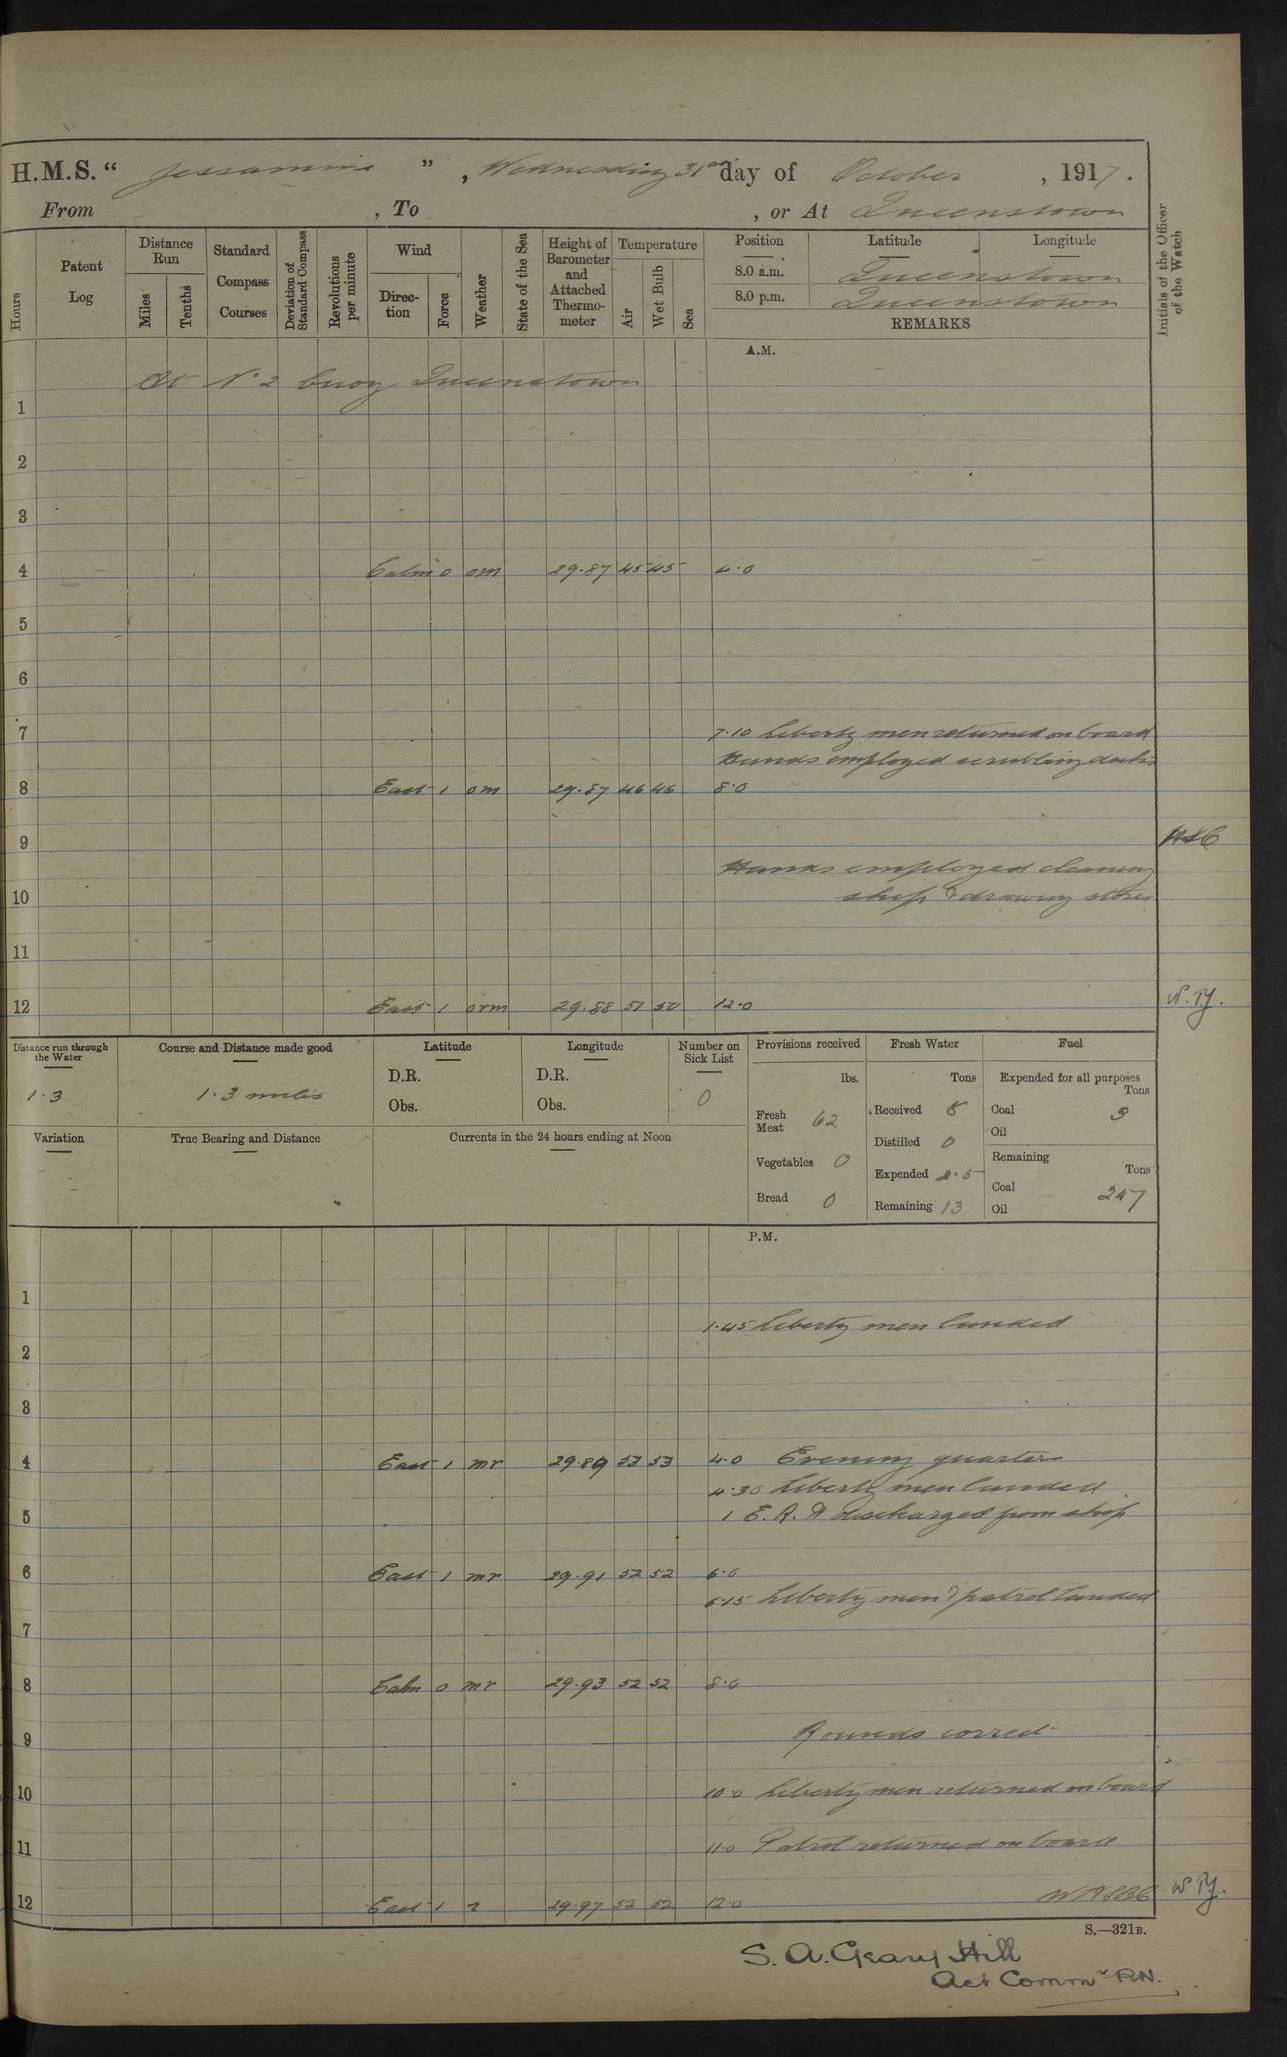 H.M.S. “ Jessamine ” , Wednesday 31st day of October , 1917.
From , To , or At Queenstown
Hours
Patent Log
Distance Run
Miles
Tenths
Standard Compass Courses
Deviation of Standard Compass
Revolutions per minute
Wind
Direc-tion
Force
Weather
State of the Sea
Height of Barometer and Attached Thermo-meter
Temperature
Air
Wet Bulb
Sea
Position Latitude Longitude
8.0 a.m. Queenstown
8.0 p.m. Queenstown
REMARKS
Initials of the Officer of the Watch
A.M.
At No 2 buoy Queenstown
1
2
3
4 Calm 0 om 29.87 45 45 4.0
5
6
7 7.10 Liberty men returned on board
Hands employed scrubbing decks
8 East 1 om 29.87 46 46 8.0
9
Hands employed cleaning
10 ship & drawing stores
11
12 East 1 orm 29.88 51 50 12.0 W.T.J.
Distance run through the Water
1.3
Course and Distance made good
1.3 miles
Latitude
D.R.
Obs.
Longitude
D.R.
Obs.
Number on Sick List
0
Provisions received
lbs.
Fresh Meat 62
Vegetables 0
Bread 0
Fresh Water
Tons
Received 8
Distilled 0
Expended 2.5
Remaining 13
Fuel
Expended for all purposes
Tons
Coal 3
Oil
Remaining
Tons
Coal 247
Oil
Variation
True Bearing and Distance
Currents in the 24 hours ending at Noon
P.M.
1
1.45 Liberty men landed
2
3
4 East 1 mr 29.89 53 53 4.0 Evening quarters
4.30 Liberty men landed
5 1 E.R.A discharged from ship
6 East 1 mr 29.91 52 52 6.0
6.15 Liberty men & patrol landed
7
8 Calm 0 mr 29.93 52 52 8.0
9 Rounds correct
10 10.0 Liberty men returned on board
11 11.0 Patrol returned on board
12 East 1 29.97 52 52 12.0 W.T.J.
S.—321B.
S. A. Geary Hill
Act Commr RN.